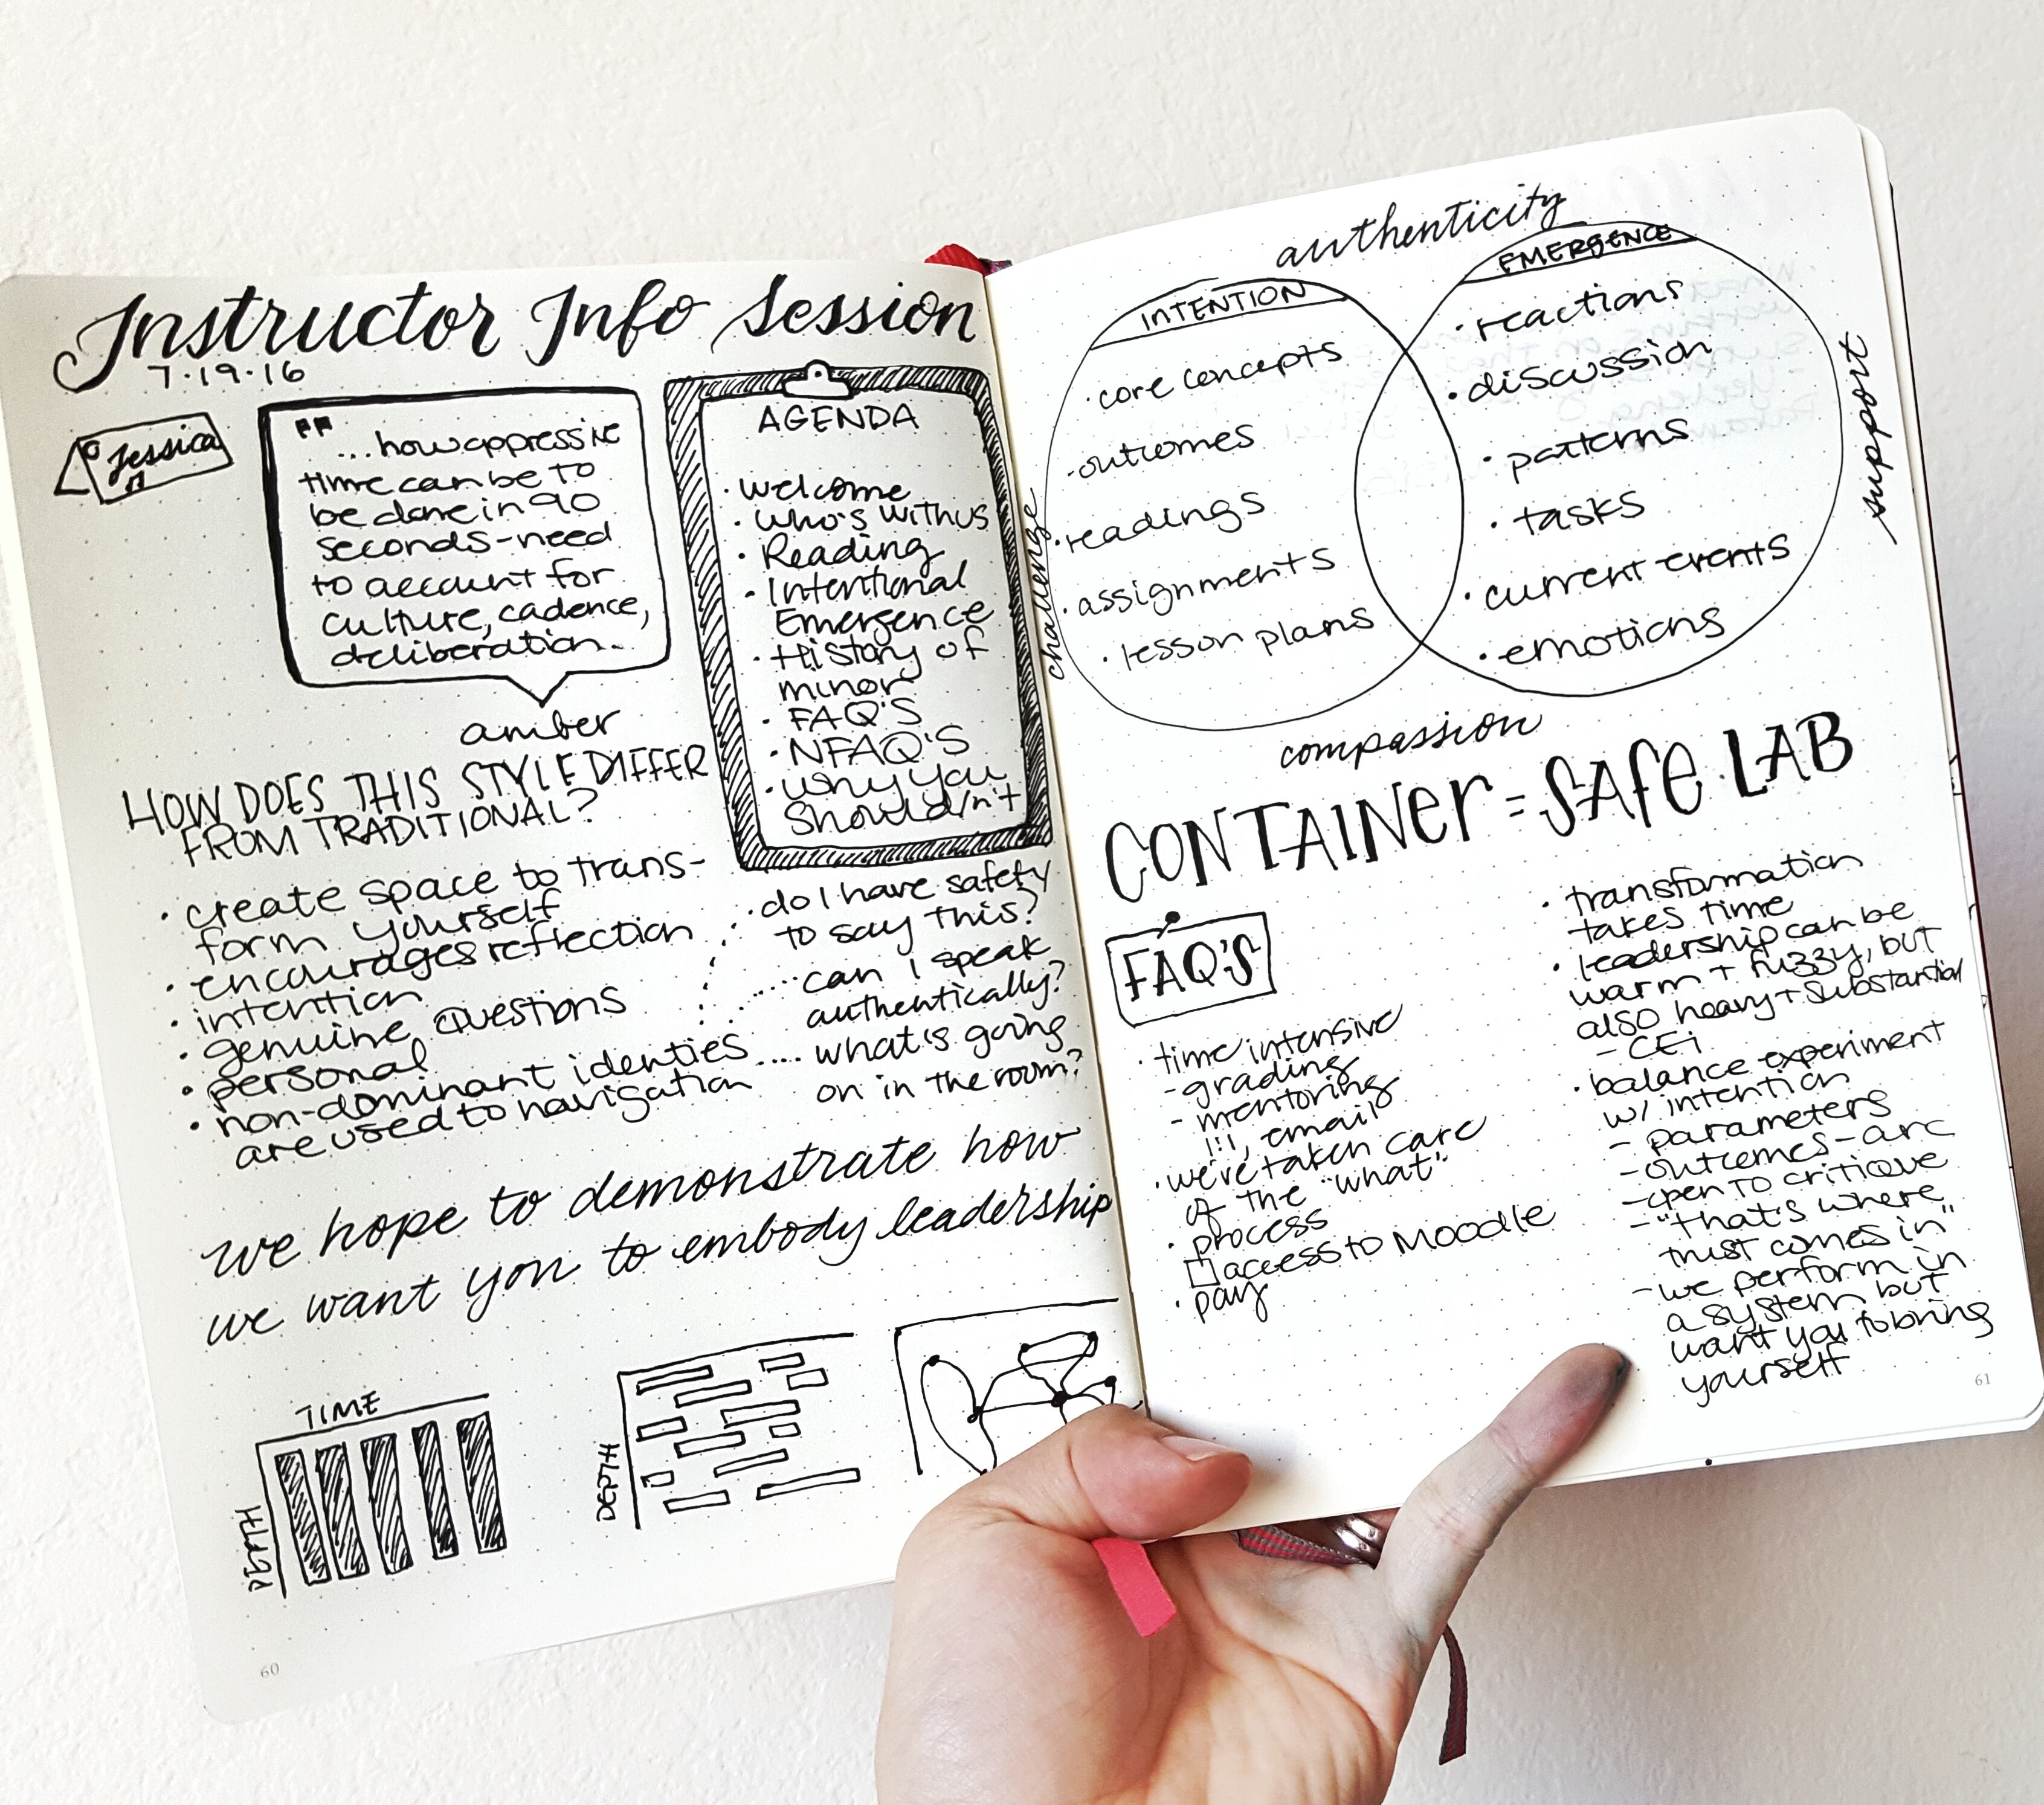 Instructor Info Session
7.19.16
Jessica
"...how oppressive
time can be to
be done in 90
seconds - need
to account for
culture, cadence,
deliberation..
amber
AGENDA
· Welcome
· Who's with us
· Reading
· Intentional
Emergence
· History of
minor
· FAQ'S
· NFAQ'S
· Why you
should/n't
HOW DOES THIS STYLE DIFFER
FROM TRADITIONAL?
· create space to trans-
form yourself
· encourages reflection
· intention
· genuine questions
· personal
· non-dominant identies
are used to navigation
· do I have safety
to say this?
.... can I speak
authentically?
.... what's going
on in the room?
we hope to demonstrate how
we want you to embody leadership
TIME
DEPTH
DEPTH
60
authenticity
challenge
support
compassion
INTENTION
· core concepts
· outcomes
· readings
· assignments
· lesson plans
EMERGENCE
· reactions
· discussion
· patterns
· tasks
· current events
· emotions
CONTAINER = SAFE LAB
FAQ'S
· time intensive
- grading
- mentoring
1:1, email
· we've taken care
of the "what"
· process
access to Moodle
· pay
· transformation
takes time
· leadership can be
warm + fuzzy, but
also heavy + substantial
- CEi
· balance experiment
w/ intention
- parameters
- outcomes - arc
- open to critique
- "that's where
trust comes in"
- we perform in
a system but
want you to bring
yourself
61